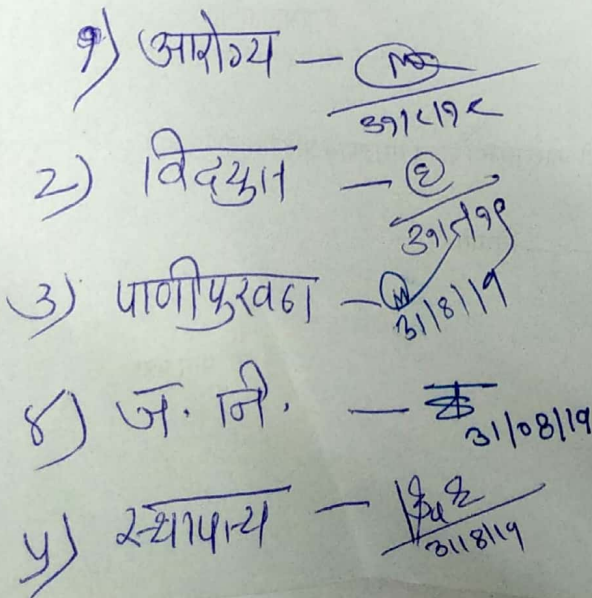 १) आरोग्य -
३१।८।१८
२) विद्युत -
३१।८।१९
३) पाणीपुरवठा -
31/8/19
४) ज. नि. -
31/08/19
५) स्थापात्य -
31/8/19